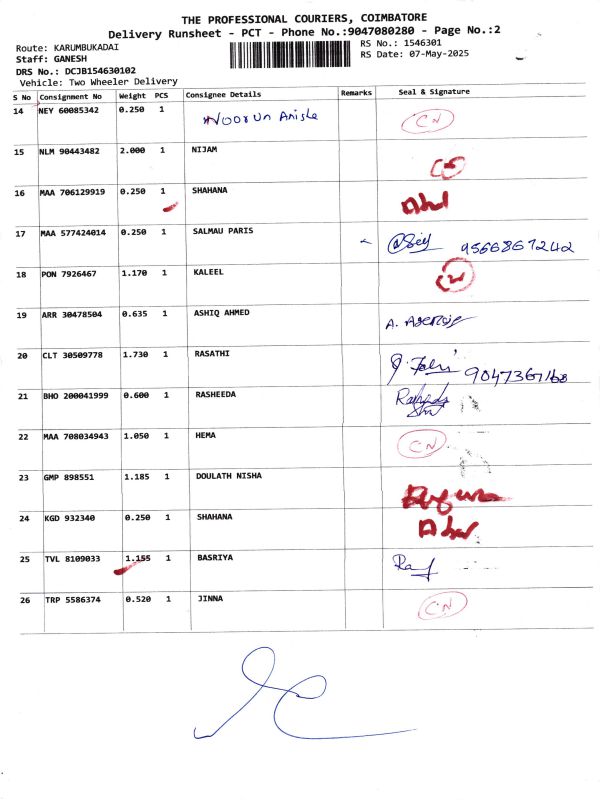 THE PROFESSIONAL COURIERS, COIMBATORE
Delivery Runsheet - PCT - Phone No.:9047080280 - Page No.:2
Route: KARUMBUKADAI RS No.: 1546301
Staff: GANESH RS Date: 07-May-2025
DRS No.: DCJB154630102
Vehicle: Two Wheeler Delivery
S No Consignment No Weight PCS Consignee Details Remarks Seal & Signature
14 NEY 60085342 0.250 1 Noorun Anisha CN
15 NLM 90443482 2.000 1 NIJAM
16 MAA 706129919 0.250 1 SHAHANA
17 MAA 577424014 0.250 1 SALMAU PARIS 9566867242
18 PON 7926467 1.170 1 KALEEL CN
19 ARR 30478504 0.635 1 ASHIQ AHMED
20 CLT 30509778 1.730 1 RASATHI
21 BHO 200041999 0.600 1 RASHEEDA Rasheeda
22 MAA 708034943 1.050 1 HEMA CN
23 GMP 898551 1.185 1 DOULATH NISHA
24 KGD 932340 0.250 1 SHAHANA
25 TVL 8109033 1.155 1 BASRIYA
26 TRP 5586374 0.520 1 JINNA CN